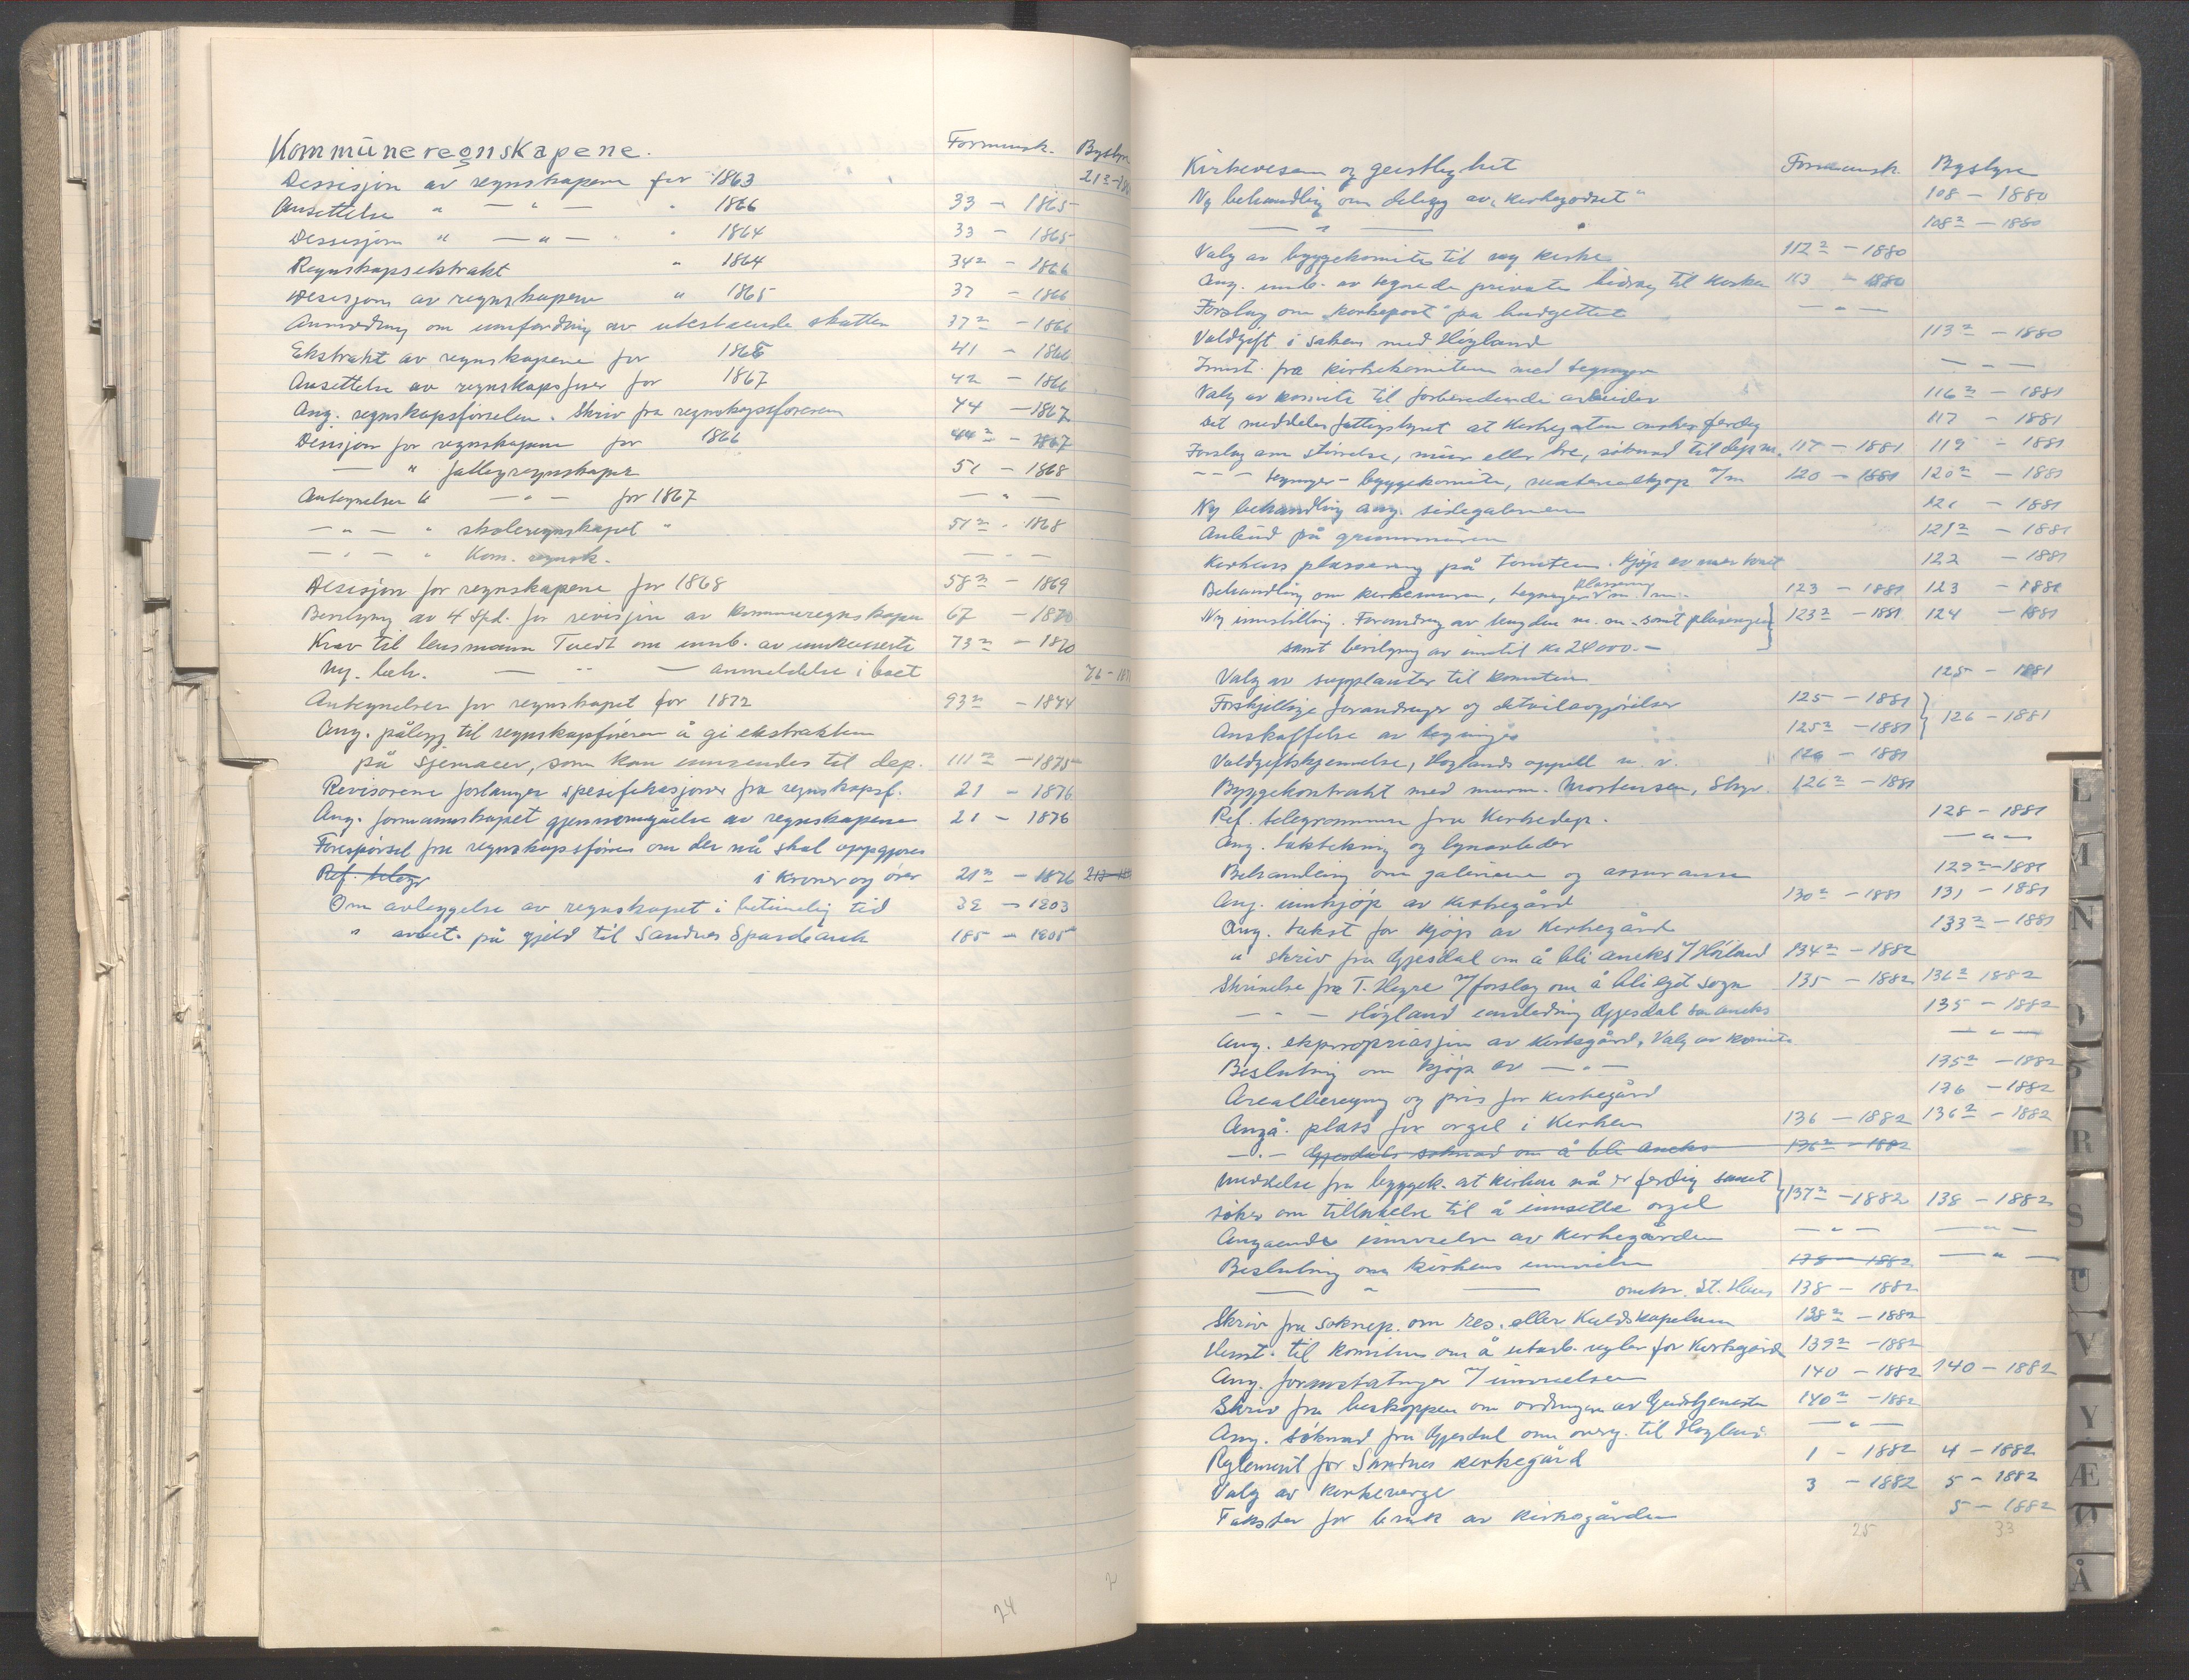 Kommuneregnskapene. Formansk. Bystyre
Desisjon av regnskapene for 1863 21²-18
Ansettelse " — " — " 1866 33 - 1865
Desisjon " — " — " 1864 33 - 1865
Regnskapsekstrakt " 1864 34² - 1866
Desisjon av regnskapene " 1865 37 - 1866
Anmodning om innfordring av utestaaende skatter 37² - 1866
Ekstrakt av regnskapene for 1865 41 - 1866
Ansettelse av regnskapsfører for 1867 42 - 1866
Ang. regnskapsførselen. Skriv fra regnskapsføreren 44 - 1867
Desisjon for regnskapene for 1866 44² - 1867
— " fattigregnskapet 51 - 1868
Antegnelser til — " — for 1867 — " —
— " — " skoleregnskapet " 51² - 1868
— " — " Kom. regnsk. — " —
Desisjon for regnskapene for 1868 58² - 1869
Bevilgning av 4 Spd. for revisjon av kommuneregnskapene 67 - 1870
Krav til lensmann Tvedt om innb. av innkasserte 73² - 1870
Ny. beh. — " — anmeldelse i boet 76 - 187
Antegnelser for regnskapet for 1872 93² - 1874
Ang. pålegg til regnskapsføreren å gi ekstrakten
på sjemaer, som kan innsendes til dep. 111² - 1875
Revisorene forlanger spesifikasjoner fra regnskapsf. 21 - 1876
Ang. formannskapet gjennomgåelse av regnskapene 21 - 1876
Forespørsel fra regnskapsføreren om der nå skal oppgjøres
Ref. telegr i kroner og ører 21² - 1876 212
Om avleggelse av regnskapet i betimelig tid 32 - 1903
" avbet. på gjeld til Sandnes Sparebank 185 - 1905
24 2
Kirkevesen og geistlighet Formansk. Bystyre
Ny behandling om delegg av "Kirkegodset" 108 - 1880
— " — 108² - 1880
Valg av byggekomite til ny kirke 112² - 1880
Ang. innb. av tegnede private bidrag til Kirken 113 - 1880
Forslag om "kirkepost" på budgettet — " —
Voldgift i saken med Høyland 113² - 1880
Innst. fra kirkekomiteen med tegninger — " —
Valg av komite til forberedende arbeider 116² - 1881
Det meddeles fattigstyret at Kirkegaten ønskes ferdig 117 - 1881
Forslag om størrelse, mur eller tre, søknad til dep m. 117 - 1881 119 - 1881
— " — tegninger - byggekomite, materialkjøp m/m 120 - 1881 120² - 1881
Ny behandling ang. sidegaleriene 121 - 1881
Anbud på grunnmuren 121² - 1881
Kirkens plassering på tomten. Kjøp av mer tomt 122 - 1881
Behandling om kirkemuren, tegninger plassering m. m. 123 - 1881 123 - 1881
Ny innstilling. Forandring av lengden m. m. samt plaseringen 123² - 1881 124 - 1881
samt bevilgning av inntil kr 24000.—
Valg av supplanter til komiteen 125 - 1881
Forskjellige forandringer og detailavgjørelser 125 - 1881
Anskaffelse av tegninger 125² - 1881 126 - 1881
Voldgiftskjennelse, Høylands appell m. v. 126 - 1881
Byggekontrakt med murm. Mortensen, Stvgr. 126² - 1881
Ref. telegrammer fra Kirkedep. 128 - 1881
Ang. taktekning og lynavleder — " —
Behandling om galeriene og assuranse 129² - 1881
Ang. innkjøp av Kirkegård 130² - 1881 131 - 1881
Ang. takst for kjøp av Kirkegård 133² - 1881
" skriv fra Gjesdal om å bli aneks t/Høiland 134² - 1882
Skrivelse fra T. Høyre m/forslag om å bli eget sogn 135 - 1882 136² 1882
— " — Høyland innledning Gjesdal som aneks 135 - 1882
Ang. ekspropriasjon av Kirkegård, Valg av komite — " —
Beslutning om kjøp av — " — 135² - 1882
Arealberegning og pris for Kirkegård 136 - 1882
Angå. plass for orgel i Kirken 136 - 1882 136² - 1882
— " — Gjesdals søknad om å bli aneks 136² - 1882
Meddelse fra byggek. at kirken nå er ferdig samt
søker om tillatelse til å innsette orgel 137² - 1882 138 - 1882
Angaaende innvielse av Kirkegården — " — — " —
Beslutning om kirkens innvielse 138 - 1882 — " —
— " — omkr. St. Hans 138 - 1882
Skriv fra soknep. om res. eller Kaldskapelan 138² - 1882
Henst. til komiteen om å utarb. regler for Kirkegård 139² - 1882
Ang. foranstaltninger v/innvielsen 140 - 1882 140 - 1882
Skriv fra biskoppen om ordningen av Gudstjenesten 140² - 1882
Ang. søknad fra Gjesdal om overg. til Høyland — " —
Reglement for Sandnes kirkegård 1 - 1882 4 - 1882
Valg av kirkeverge 3 - 1882 5 - 1882
Takster for bruk av kirkegården 5 - 1882
25 33
L
M
N
O
P
R
S
U
V
Y
Æ
Ø
Å